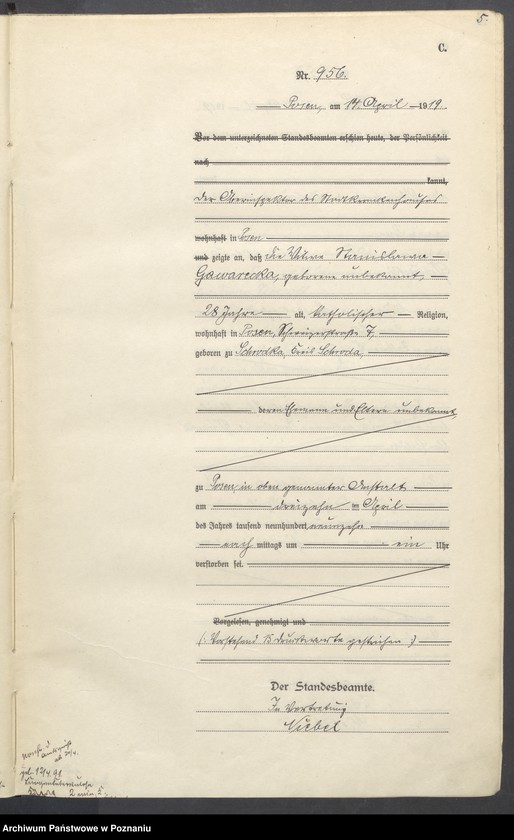 5.
C.
Nr. 956.
Posen, am 14. April 1919.
Vor dem unterzeichneten Standesbeamten erschien heute, der Persönlichkeit
nach
kannt,
Der Oberinspektor des Stadtkrankenhauses
wohnhaft in Posen
und zeigte an, daß die Witwe Stanislawa
Gawarecka, geborene unbekannt,
28 Jahre alt, katholischer Religion,
wohnhaft in Posen, Schweizerstraße 7,
geboren zu Kreis Schroda,
deren Ehemann und Eltern unbekannt
zu Posen, in oben genannter Anstalt
am dreizehn ten April
des Jahres tausend neunhundert neunzehn
nach mittags um ein Uhr
verstorben sei.
Vorgelesen, genehmigt und
(Vorstehend 13 Druckworte gestrichen)
Der Standesbeamte.
In Vertretung
Archiwum Państwowe w Poznaniu